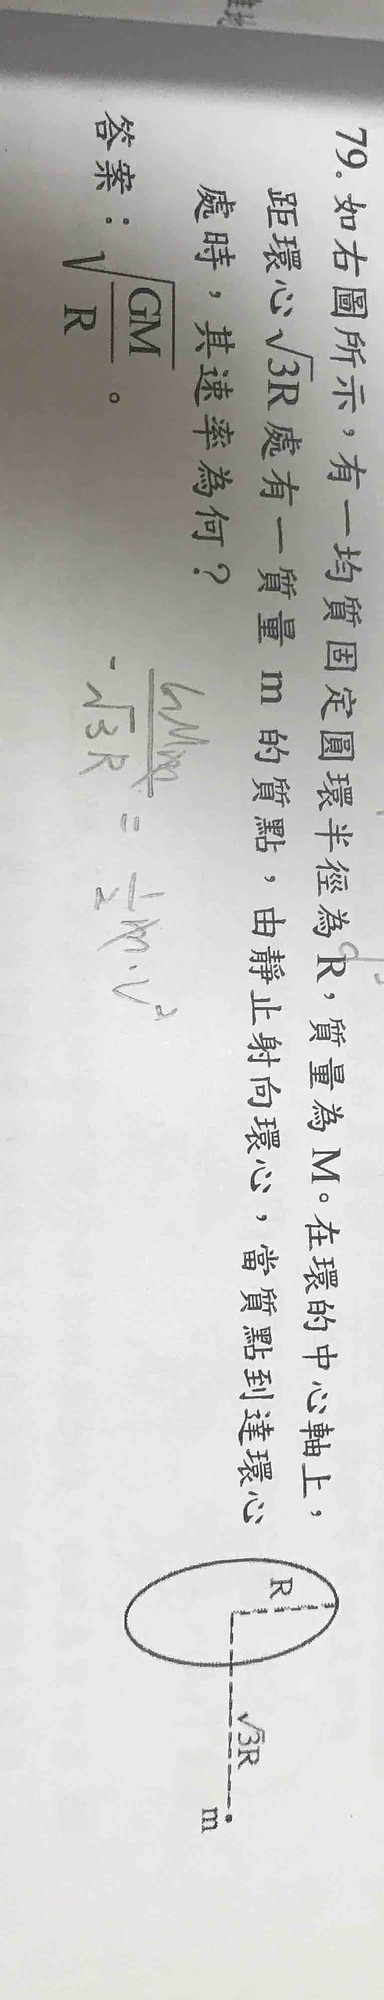 79. 如右圖所示，有一均質固定圓環半徑為R，質量為M。在環的中心軸上，
距環心√3R處有一質量m的質點，由靜止射向環心，當質點到達環心
處時，其速率為何？
答案：√(GM/R)。
R
√3R
m
-GMm/√3R = 1/2 m·V²